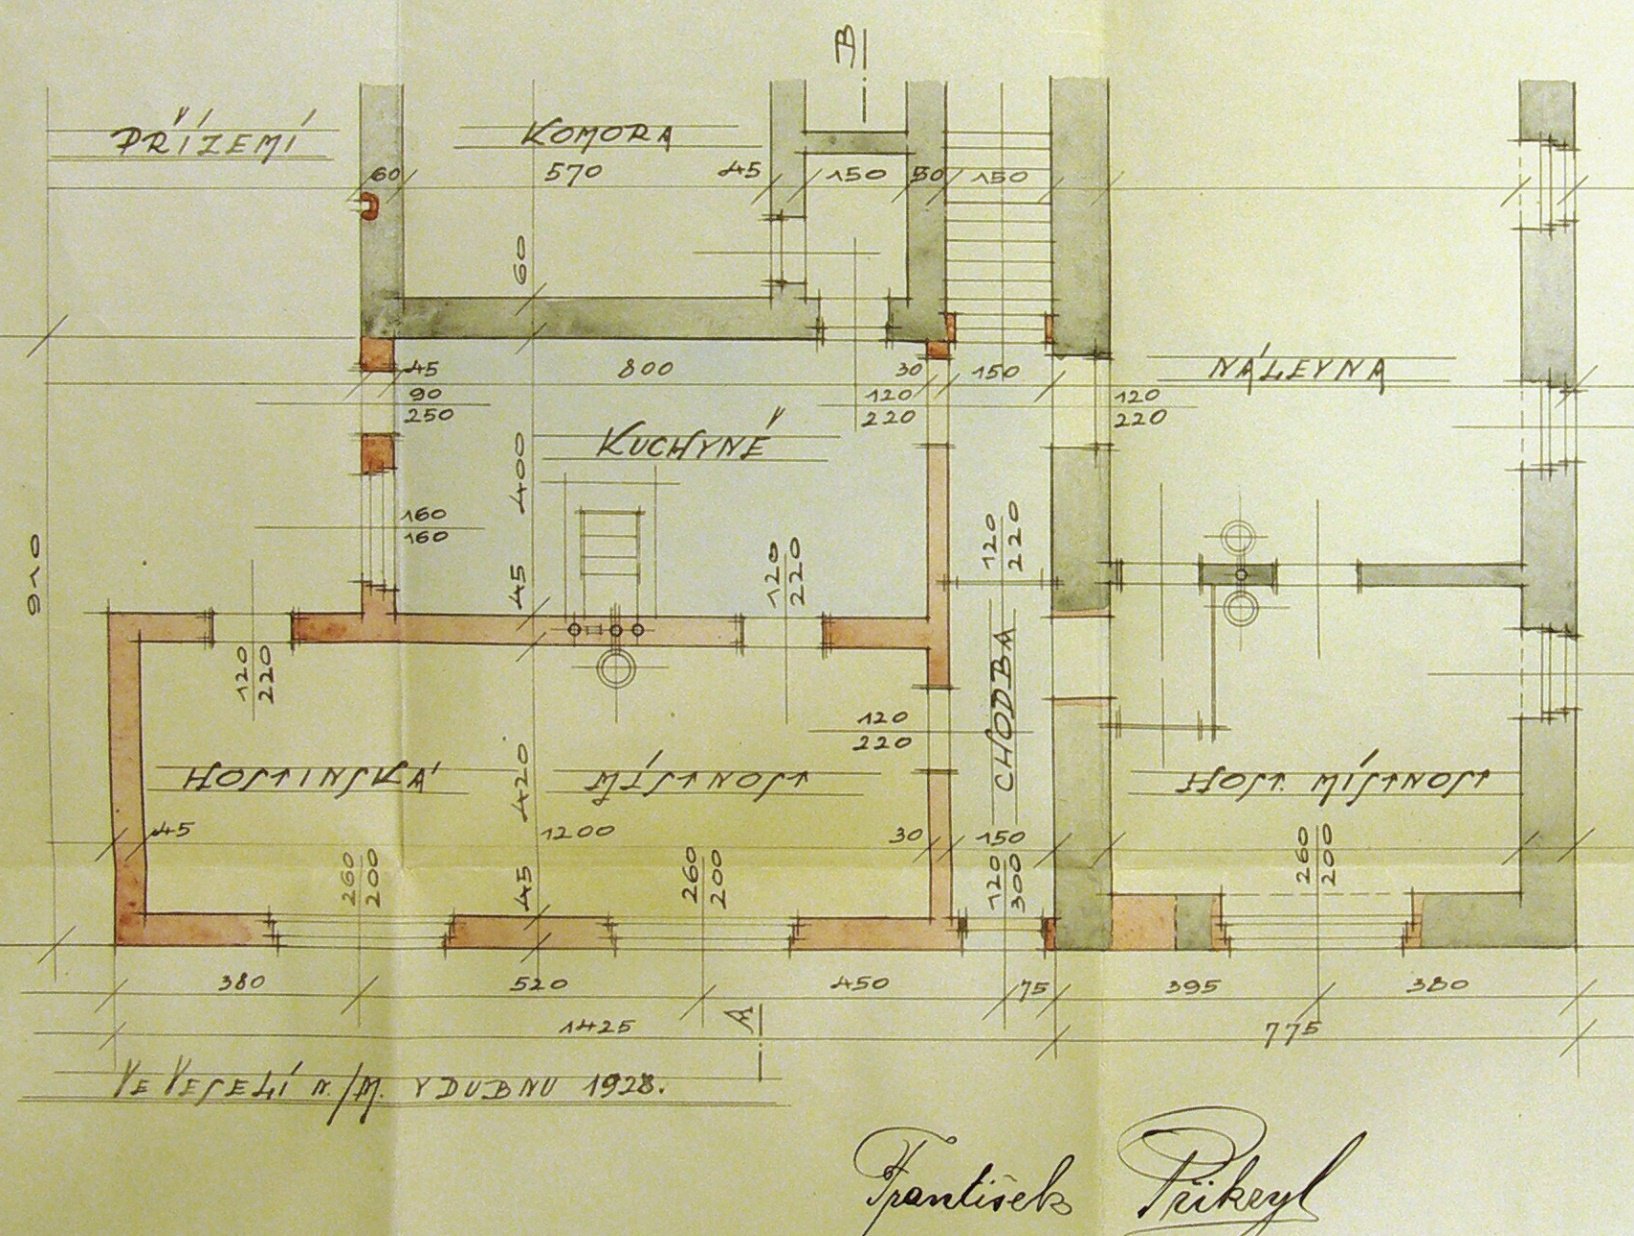 A
PŘÍZEMÍ
KOMORA
60 570 45 150 50 150
60
45 800 30 150
90
250
120
220
120
220
NÁLEVNA
KUCHYNĚ
400
160
160
910
45
120
220
120
220
120
220
CHODBA
120
220
HOSTINSKÁ MÍSTNOST
HOST. MÍSTNOST
420
45 1200 30 150
260
200
45
260
200
120
300
260
200
380 520 450 75 395 380
1425
A
775
VE VESELÍ N./M. V DUBNU 1928.
František Přikryl